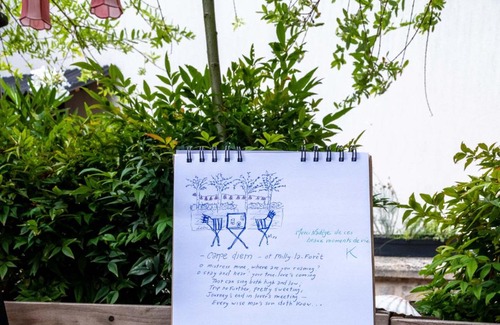 Carpe diem - at Milly la Forêt
O mistress mine, where are you roaming?
O stay and hear; your true love's coming
That can sing both high and low;
Trip no further, pretty sweeting,
Journeys end in lovers' meeting —
Every wise man's son doth know...
K